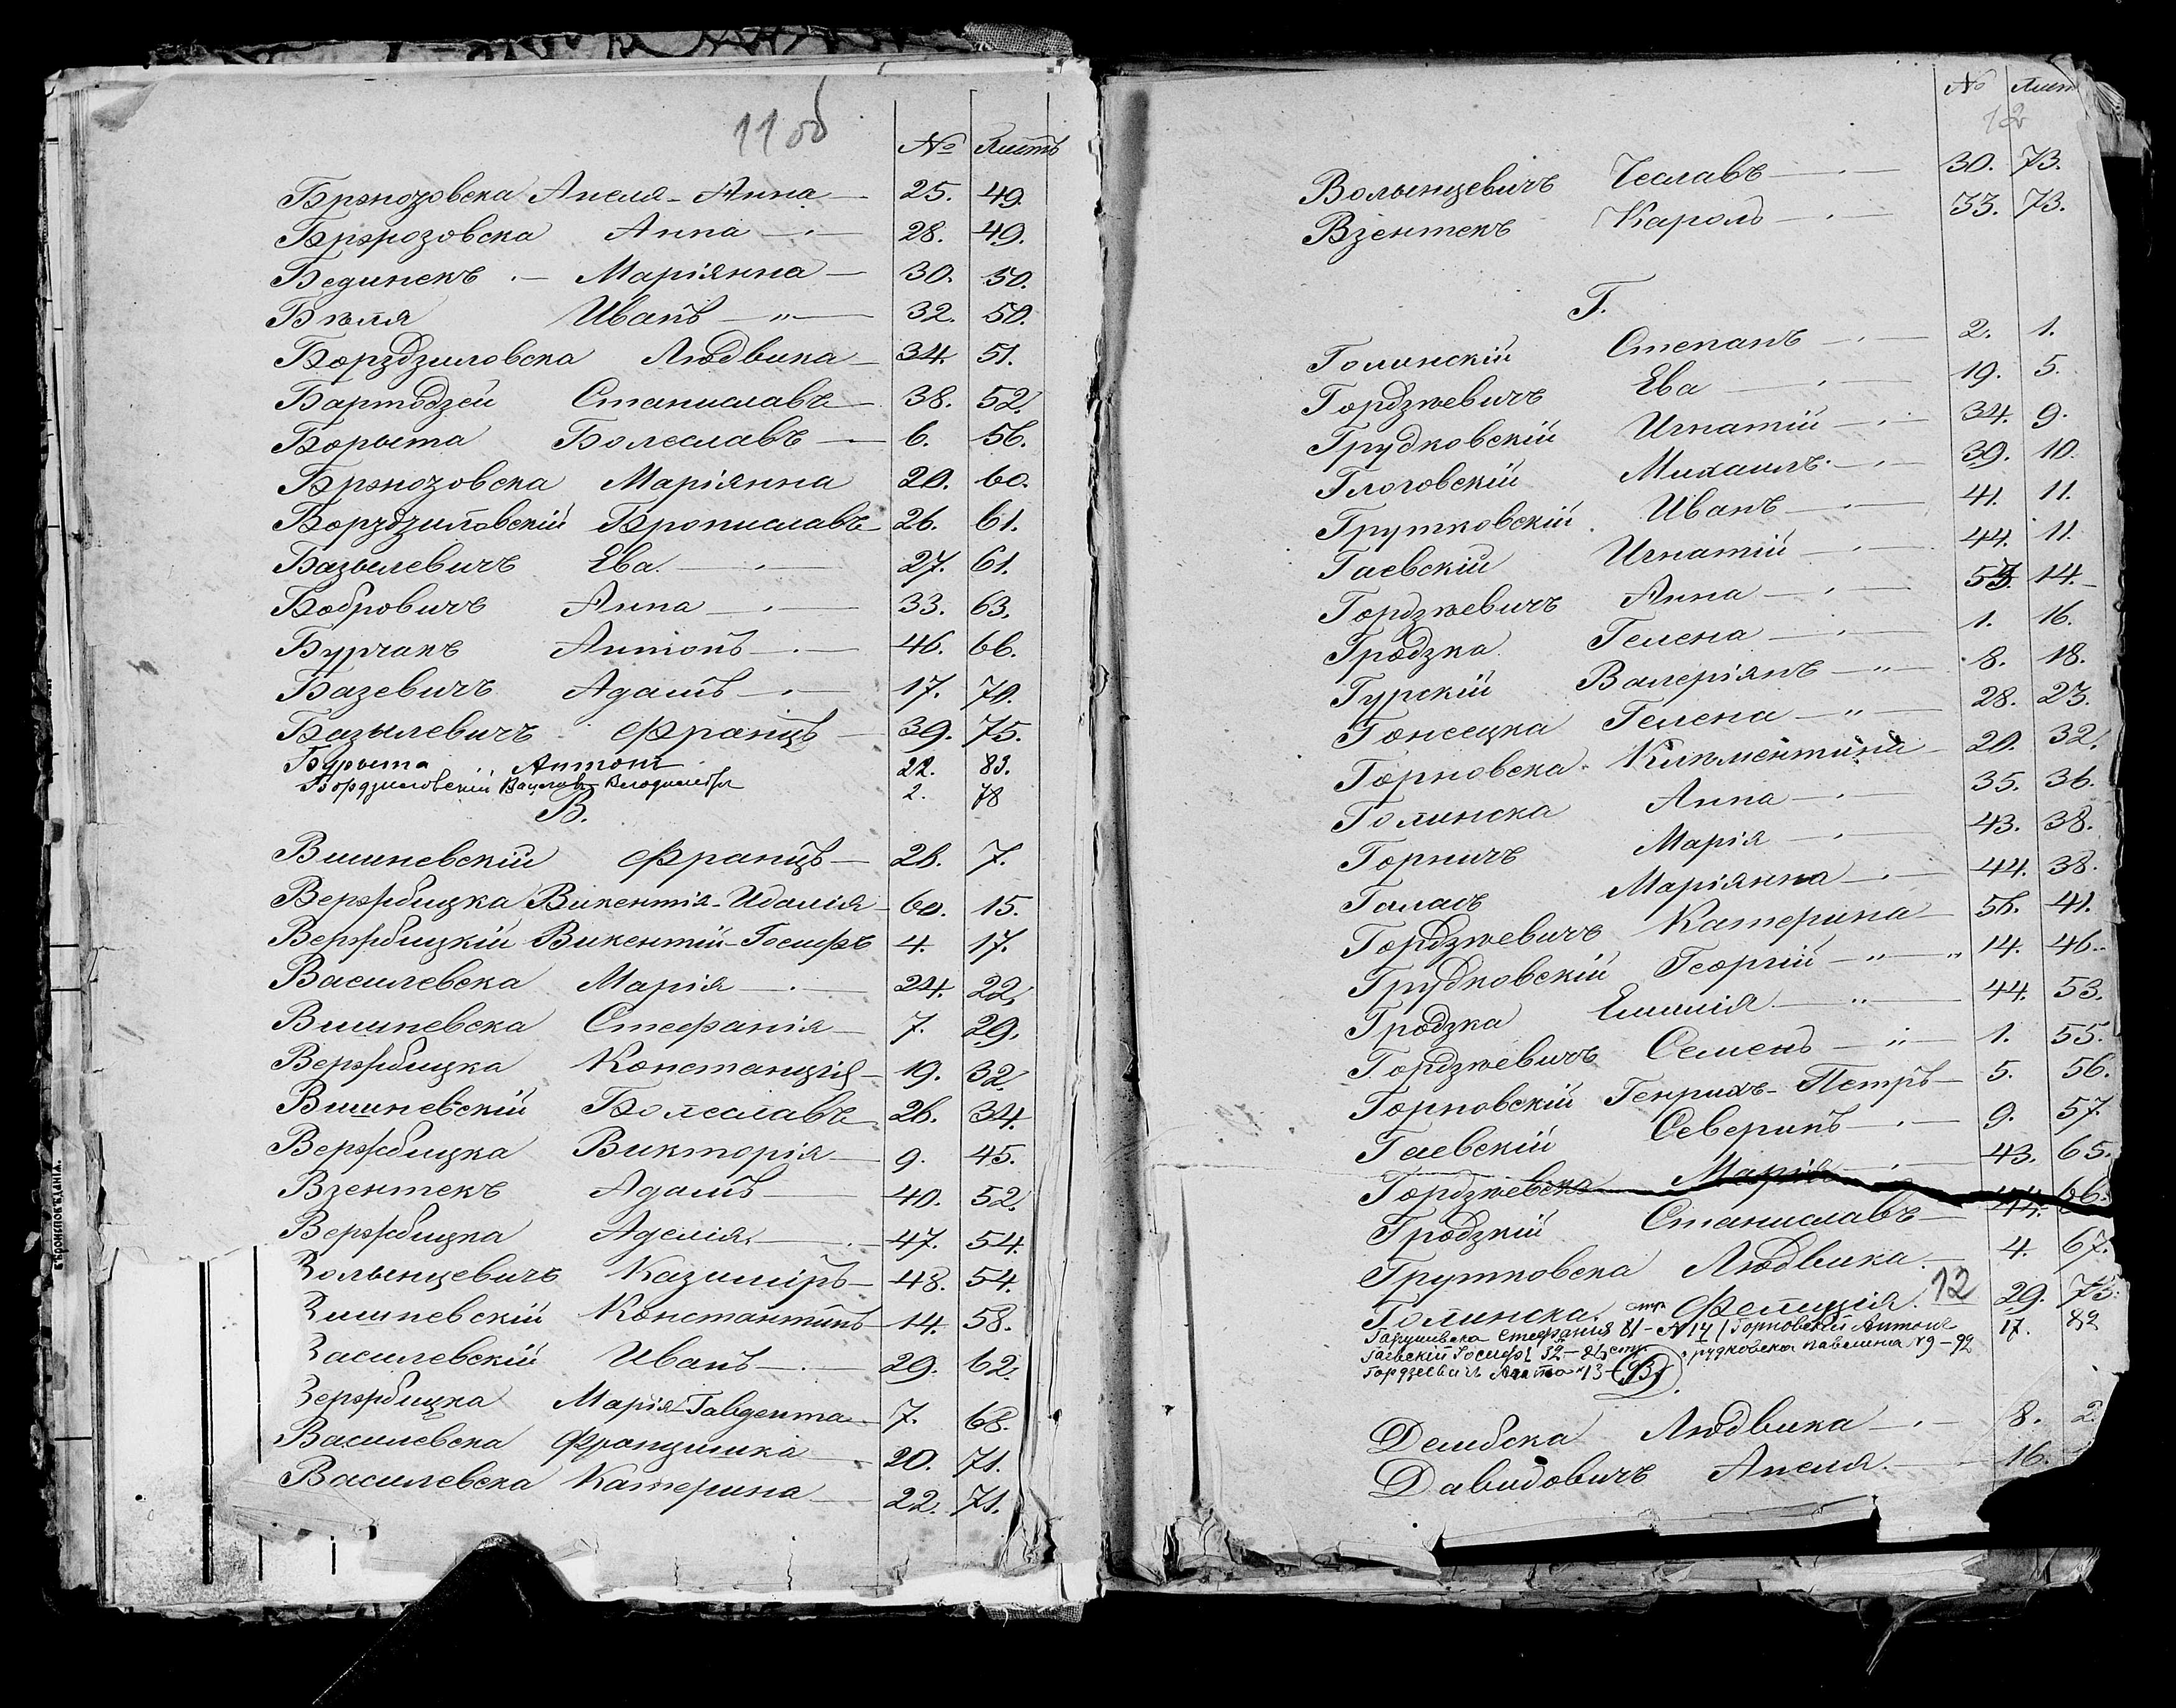 11 об
№ Листъ
Брженозовска Анеля-Анна 25. 49.
Бржозовска Анна 28. 49.
Бединекъ Маріянна 30. 50.
Бѣля Иванъ 32. 50.
Борздзиловска Людвика 34. 51.
Бартодзей Станиславъ 38. 52.
Борыта Болеславъ 6. 56.
Брженозовска Маріянна 20. 60.
Борздзиловскій Брониславъ 26. 61.
Базылевичъ Ева 27. 61.
Бобровичъ Анна 33. 63.
Бурчакъ Антонъ 46. 66.
Базевичъ Адамъ 17. 70.
Базылевичъ Францъ 39. 75.
Бурыта Антонъ 22. 83.
Бордзиловскій Вацлавъ-Влодимержъ 2. 78
В.
Вишневскій Францъ 26. 7.
Вержбицка Викентія-Идалія 60. 15.
Вержбицкій Викентій-Іосифъ 4. 17.
Василевска Марія 24. 22.
Вишневска Стефанія 7. 29.
Вержбицка Констанція 19. 32.
Вишневскій Болеславъ 26. 34.
Вержбицка Викторія 9. 45.
Взентекъ Адамъ 40. 52.
Вержбицка Аделія 47. 54.
Волынцевичъ Казиміръ 48. 54.
Вишневскій Константинъ 14. 58.
Василевскій Иванъ 29. 62.
Вержбицка Марія-Гавдента 7. 68.
Василевска Францишка 20. 71.
Василевска Катерина 22. 71.
№ Лист
12
Волынцевичъ Чеславъ 30. 73.
Взентекъ Кароль 33. 73.
Г.
Голинскій Степанъ 2. 1.
Гордзѣевичъ Ева 19. 5.
Грудковскій Игнатій 34. 9.
Глоговскій Михаилъ 39. 10.
Грутковскій Иванъ 41. 11.
Гаевскій Игнатій 44. 11.
Гордзѣевичъ Анна 14.
Гродзка Гелена 1. 16.
Гурскій Валеріянъ 8. 18.
Гонсецка Гелена 28. 23.
Горновска Климентина 20. 32.
Голинска Анна 35. 36.
Горничъ Марія 43. 38.
Галасъ Маріянна 44. 38.
Гордзѣевичъ Катерина 56. 41.
Грудковскій Георгій 14. 46.
Гродзка Емилія 44. 53.
Гордзѣевичъ Семенъ 1. 55.
Горновскій Генрихъ-Петръ 5. 56.
Гаевскій Северинъ 9. 57.
Гордзѣевска Марія 43. 65.
Гродзкій Станиславъ 44. 66.
Грутковска Людвика 4. 67.
Голинска Фелиція 12 29. 73.
Гарушевска Стефанія стр 81 - № 14 Горновскій Антонъ 17. 82
Гаевскій Іосифъ 32 - 86 стр. рудковска Павелина 19-92
Гордзевичъ Анто 13-
Д.
Дембска Людвика 8. 2
Давидовичъ Анеля 16.